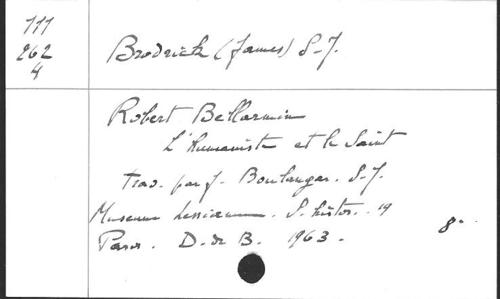 111
262
4
Brodrick (James) S.J.
Robert Bellarmin
L'humaniste et le Saint
Trad. par J. Boulanger. S.J.
Museum Lessianum. S. histor. 19
Paris. D. de B. 1963.
8°